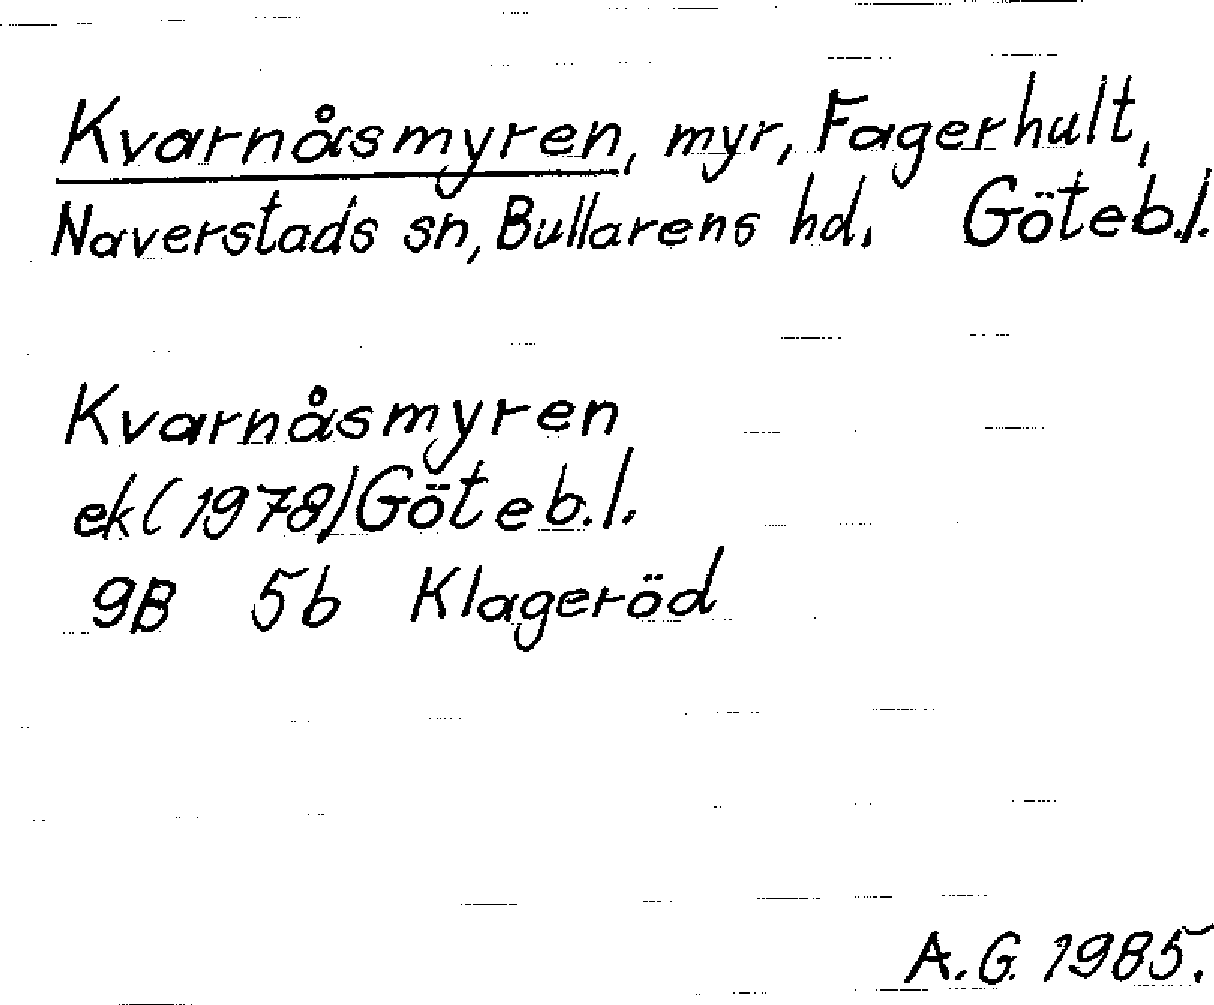 Kvarnåsmyren, myr, Fagerhult,
Naverstads sn, Bullarens hd. Göteb.l.
Kvarnåsmyren
ek (1978) Göteb.l.
9B 5b Klageröd
A.G. 1985.